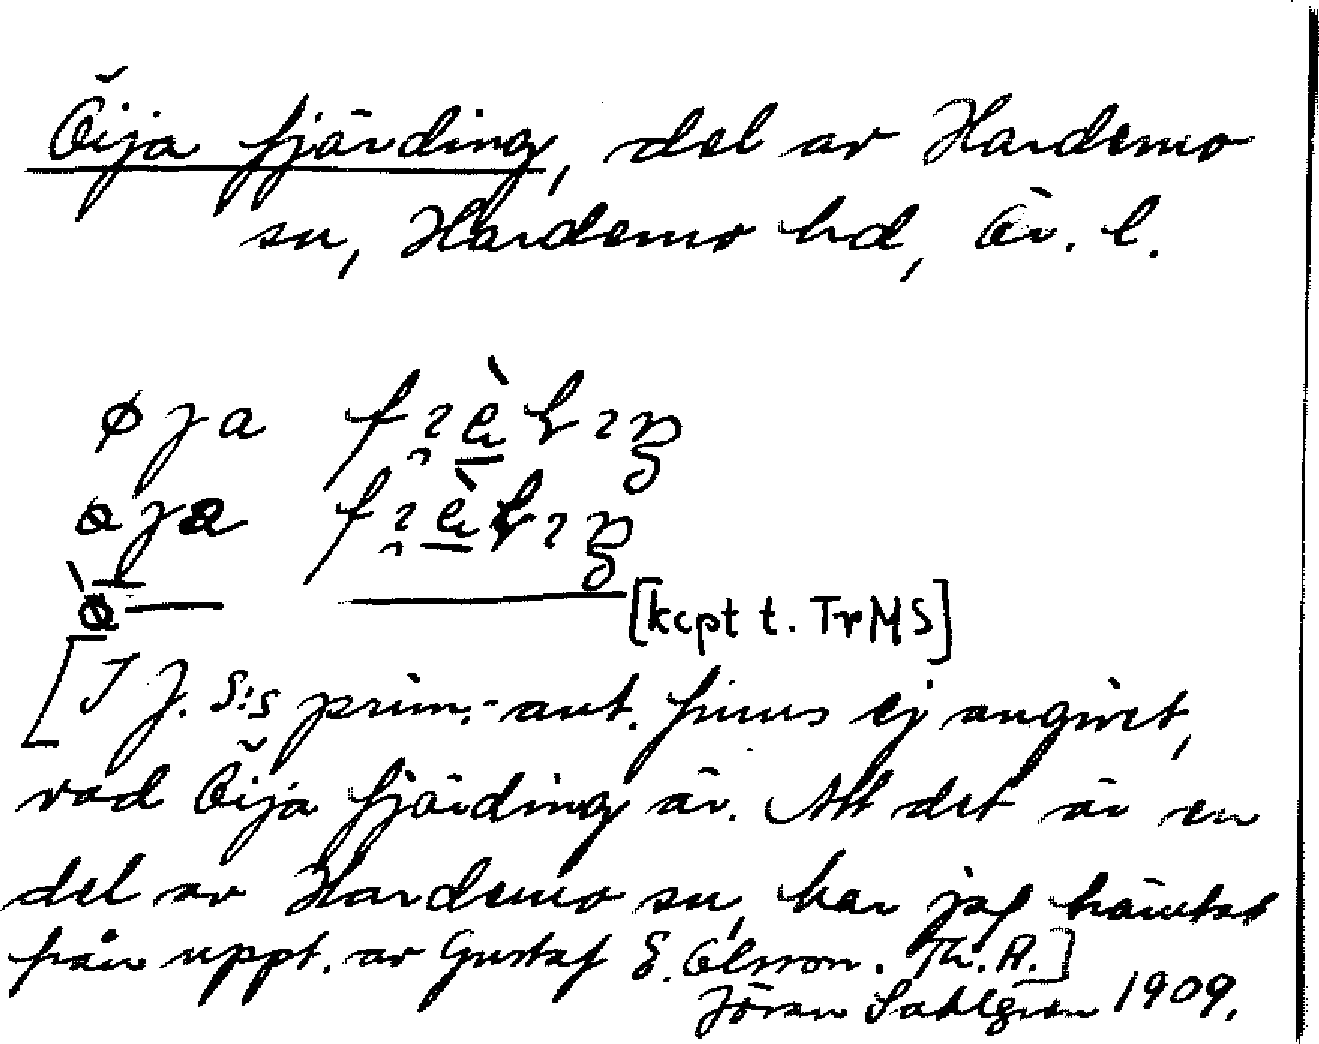 Öija fjärding, del av Hardemo
sn, Hardemo hd, Ör. l.
[kcpt t. TrMS]
[I J. S:s prim.-ant. finns ej angivet,
vad Öija fjärding är. Att det är en
del av Hardemo sn, har jag hämtat
från uppt. av Gustaf E. Olsson. Th. A.]
Jöran Sahlgren 1909.